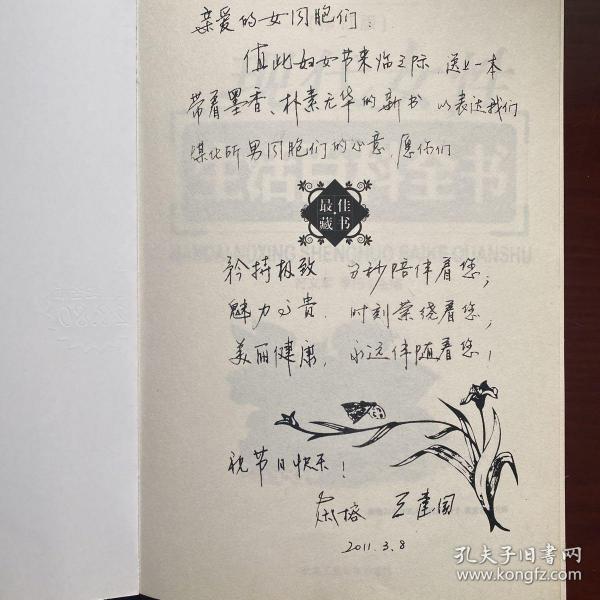 亲爱的女同胞们:
值此妇女节来临之际 送上一本
带着墨香、朴素无华的新书 以表达我们
煤化所男同胞们的心意,愿你们
最佳
藏书
矜持极致 分秒陪伴着您;
魅力高贵,时刻萦绕着您;
美丽健康,永远伴随着您!
祝节日快乐!
王建国
2011.3.8
孔夫子旧书网
www.kongfz.com